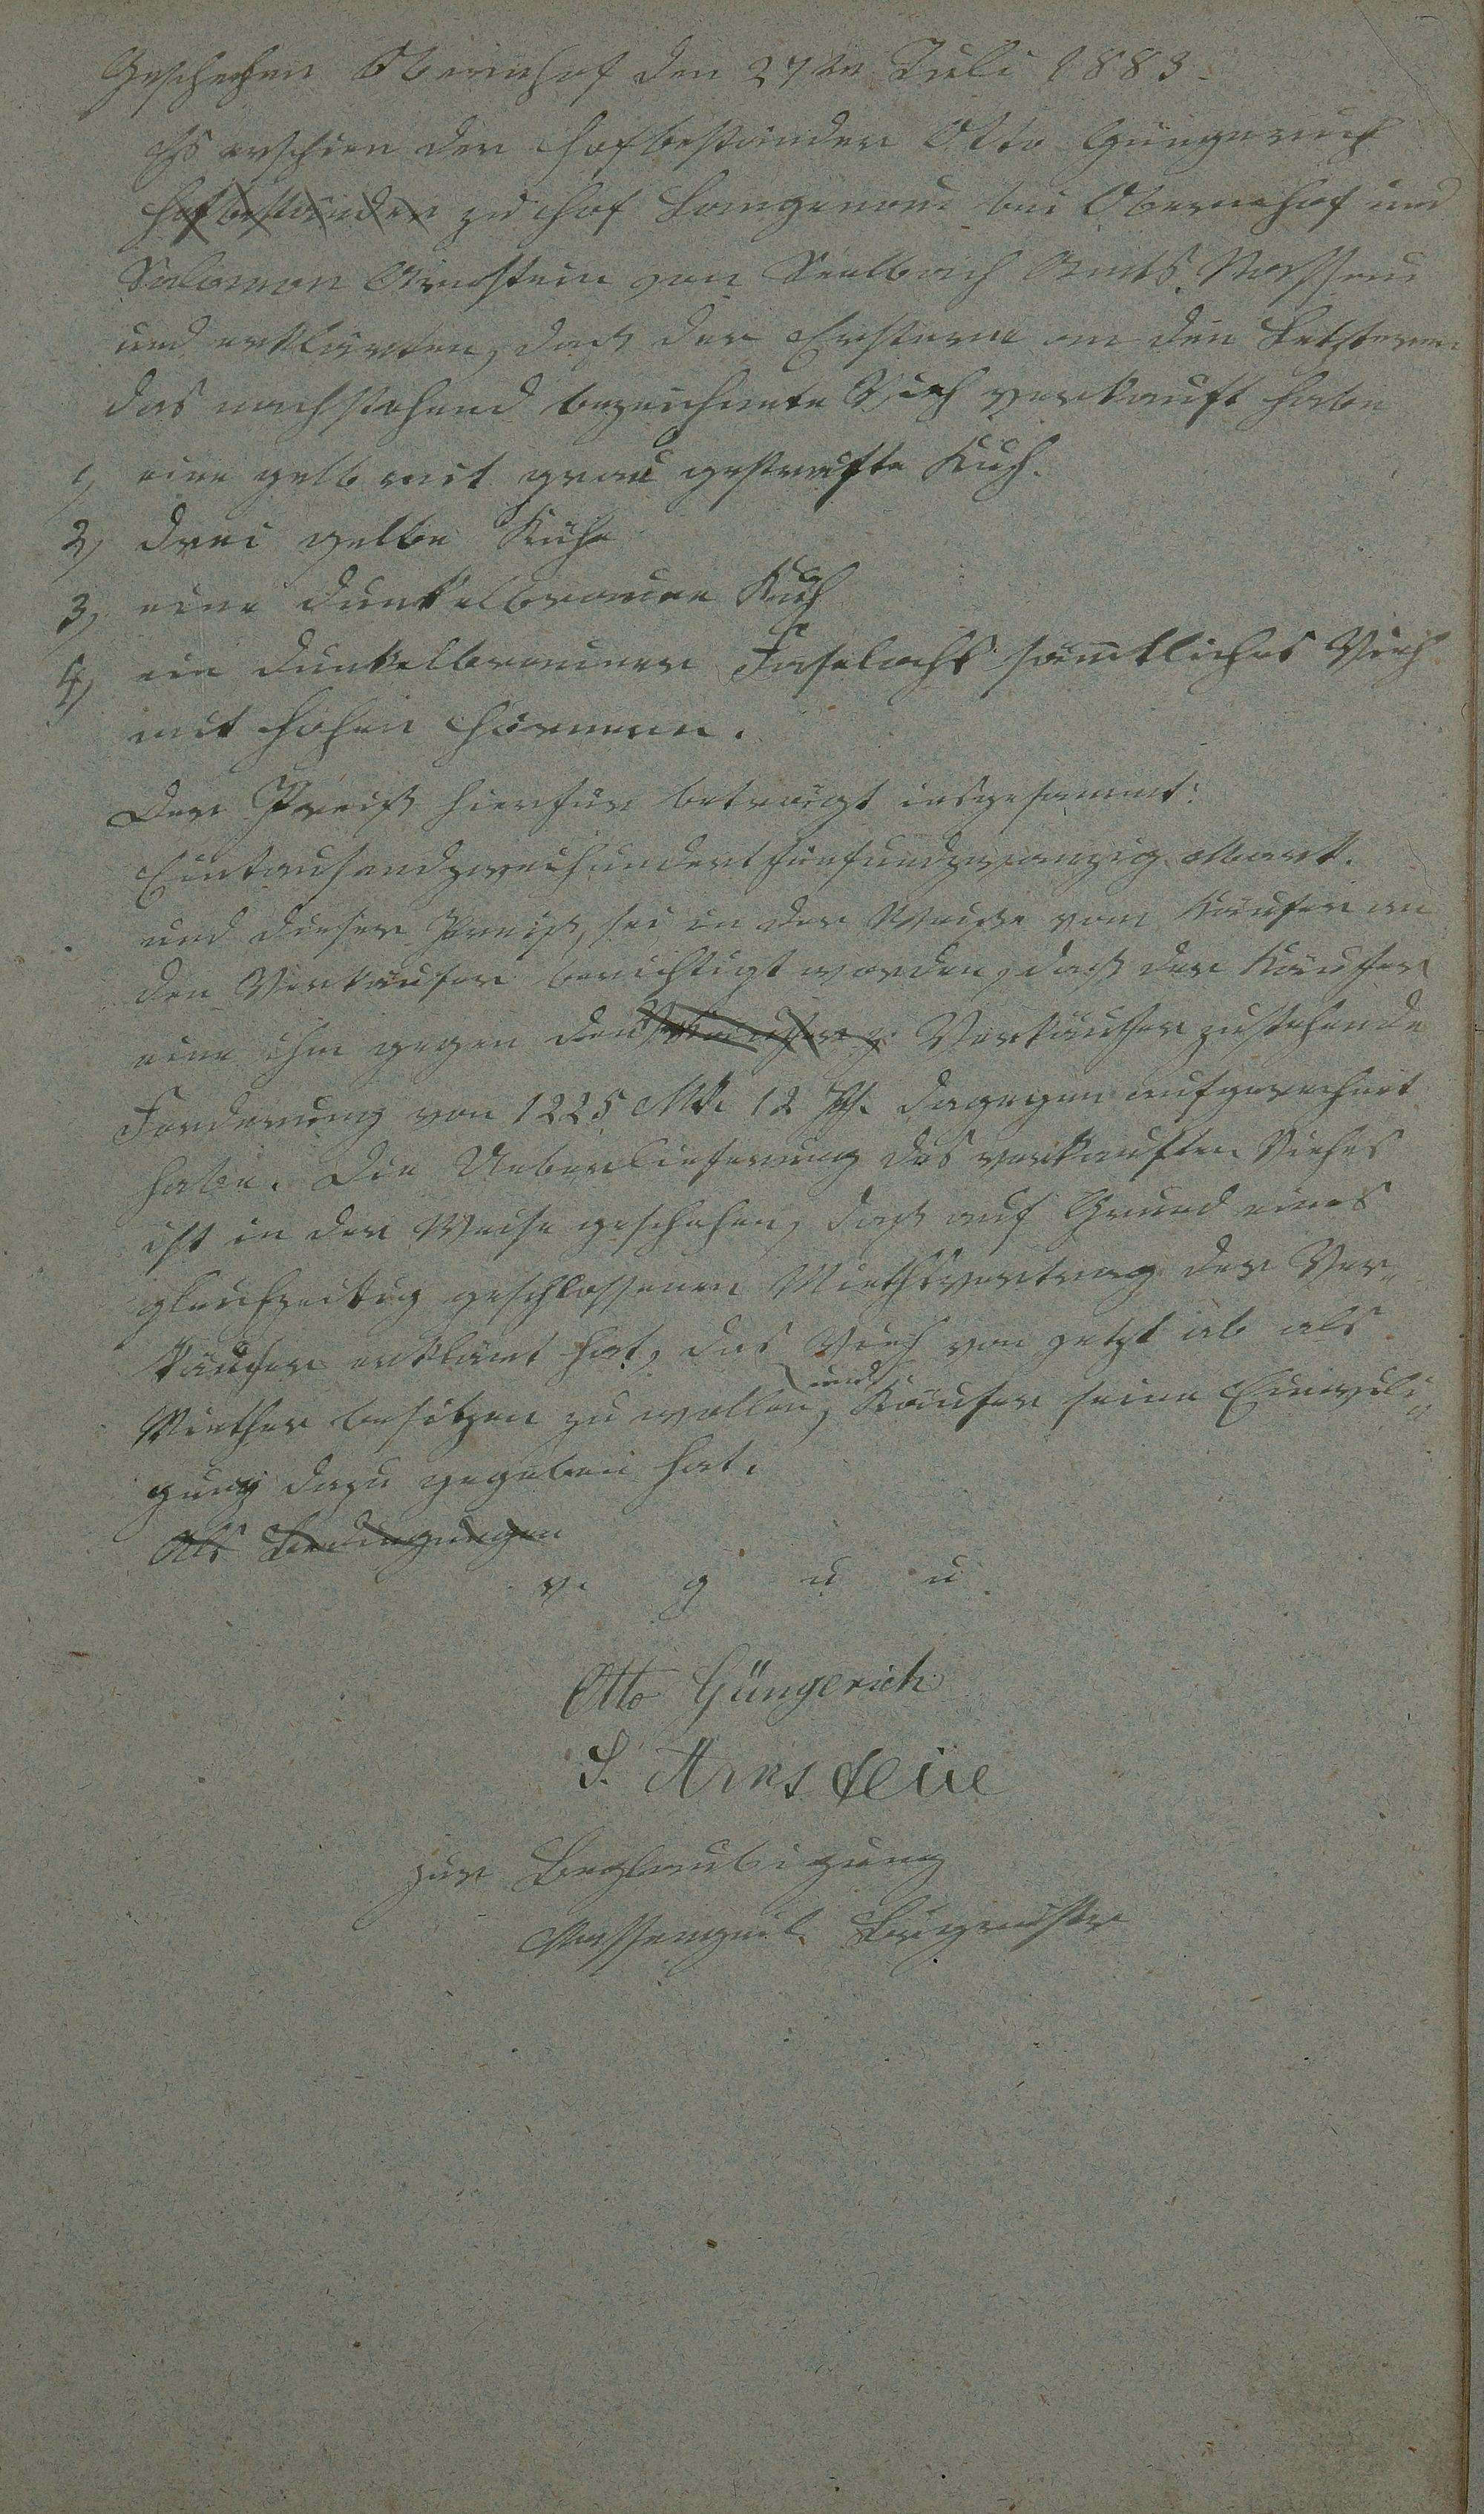 Geschehen Obernhof den 27ten Juli 1883.
Es erschien der Hofbeständer Otto Güngerich
Hofbeständer zu Hof Langenau bei Obernhof und
Salomon Arnstein von Seelbach Amts Nassau
und erklärten, daß der Erstere an den Letzteren
das nachstehend bezeichnete Vieh verkauft habe
1, eine gelb mit grau gestreifte Kuh.
2, drei gelbe Kühe
3, eine dunkelbraune Kuh
4, ein dunkelbrauner Faselochs sämtliches Vieh
mit hohen Hörnern.
Der Preiß hierfür beträgt insgesammt:
Eintausendzweihundertfünfundzwanzig Mark.
und dieser Preiß, sei in der Weise vom Käufer an
den Verkäufer berichtigt worden, daß der Käufer
eine ihm gegen den Verkäufer zustehende
Forderung von 1225 Mk. 12 Pf. dagegen aufgerechnet
habe. Die Ueberlieferung des verkauften Viehes
ist in der Weise geschehen, daß auf Grund eines
gleichzeitig geschlossenen Miethsvertrag der Ver-
käufer erklärt hat, das Vieh von jetzt ab als
Miether besitzen zu wollen, und Käufer seine Einwili-
gung dazu gegeben hat.
Als Bedingungen
v. g. u. u.
Otto Güngerich
S. Arnstein
zur Beglaubigung
Bürgermstr